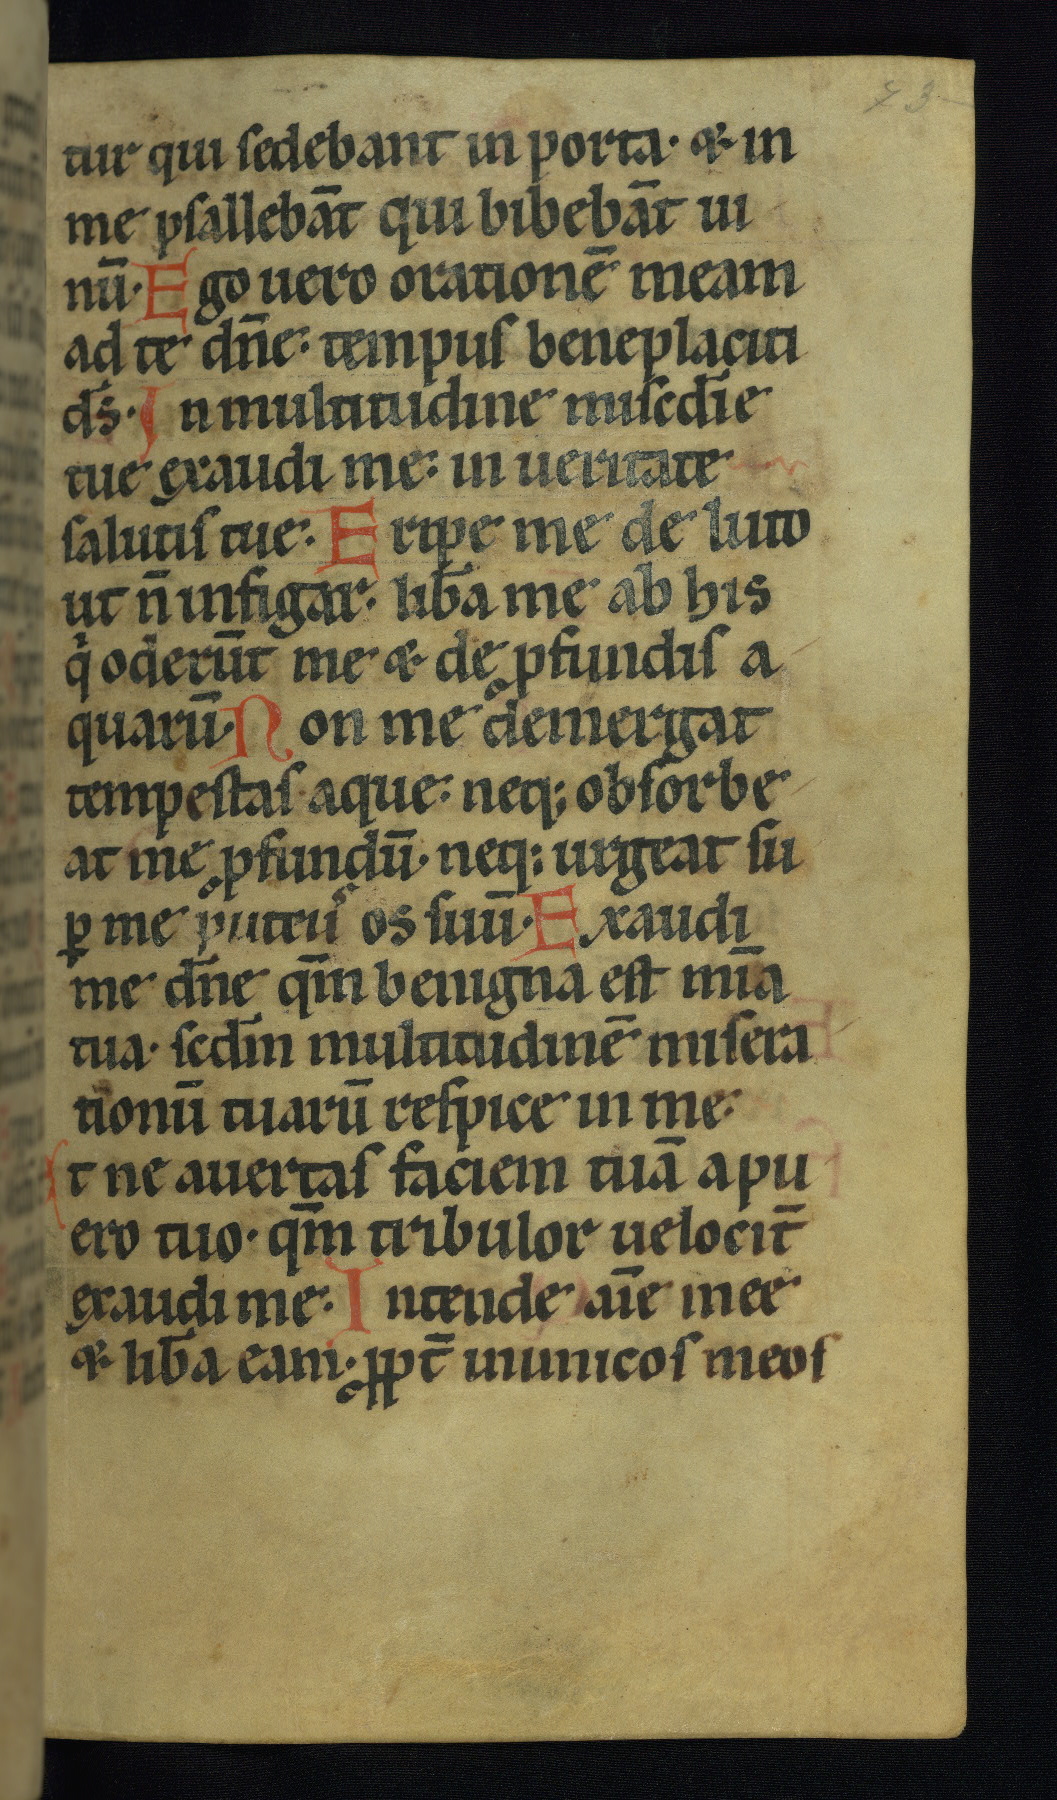 73
tur qui sedebant in porta· ⁊ in
me psallebāt qui bibebāt ui
nū· Ego uero orationē meam
ad te dn̄e: tempus beneplaciti
ds̄· In multitudine misc̄die
tue exaudi me: in ueritate
salutis tue: Eripe me de luto
ut n̄ infigar· lib̄a me ab his
q̇ oderūt me ⁊ de ꝓfundis a
quarū· Non me demergat
tempestas aque: neq; obsorbe
at me ꝓfundū· neq; urgeat su
ꝑ me puteus os suū· Exaudi
me dn̄e qm̄ benigna est mīa
tua· scd̄m multitudinē misera
tionū tuarū respice in me:
Et ne auertas faciem tuā a pu
ero tuo· qm̄ tribulor uelocit̄
exaudi me: Intende aīe mee
⁊ lib̄a eam: ꝓpt̄ inimicos meos